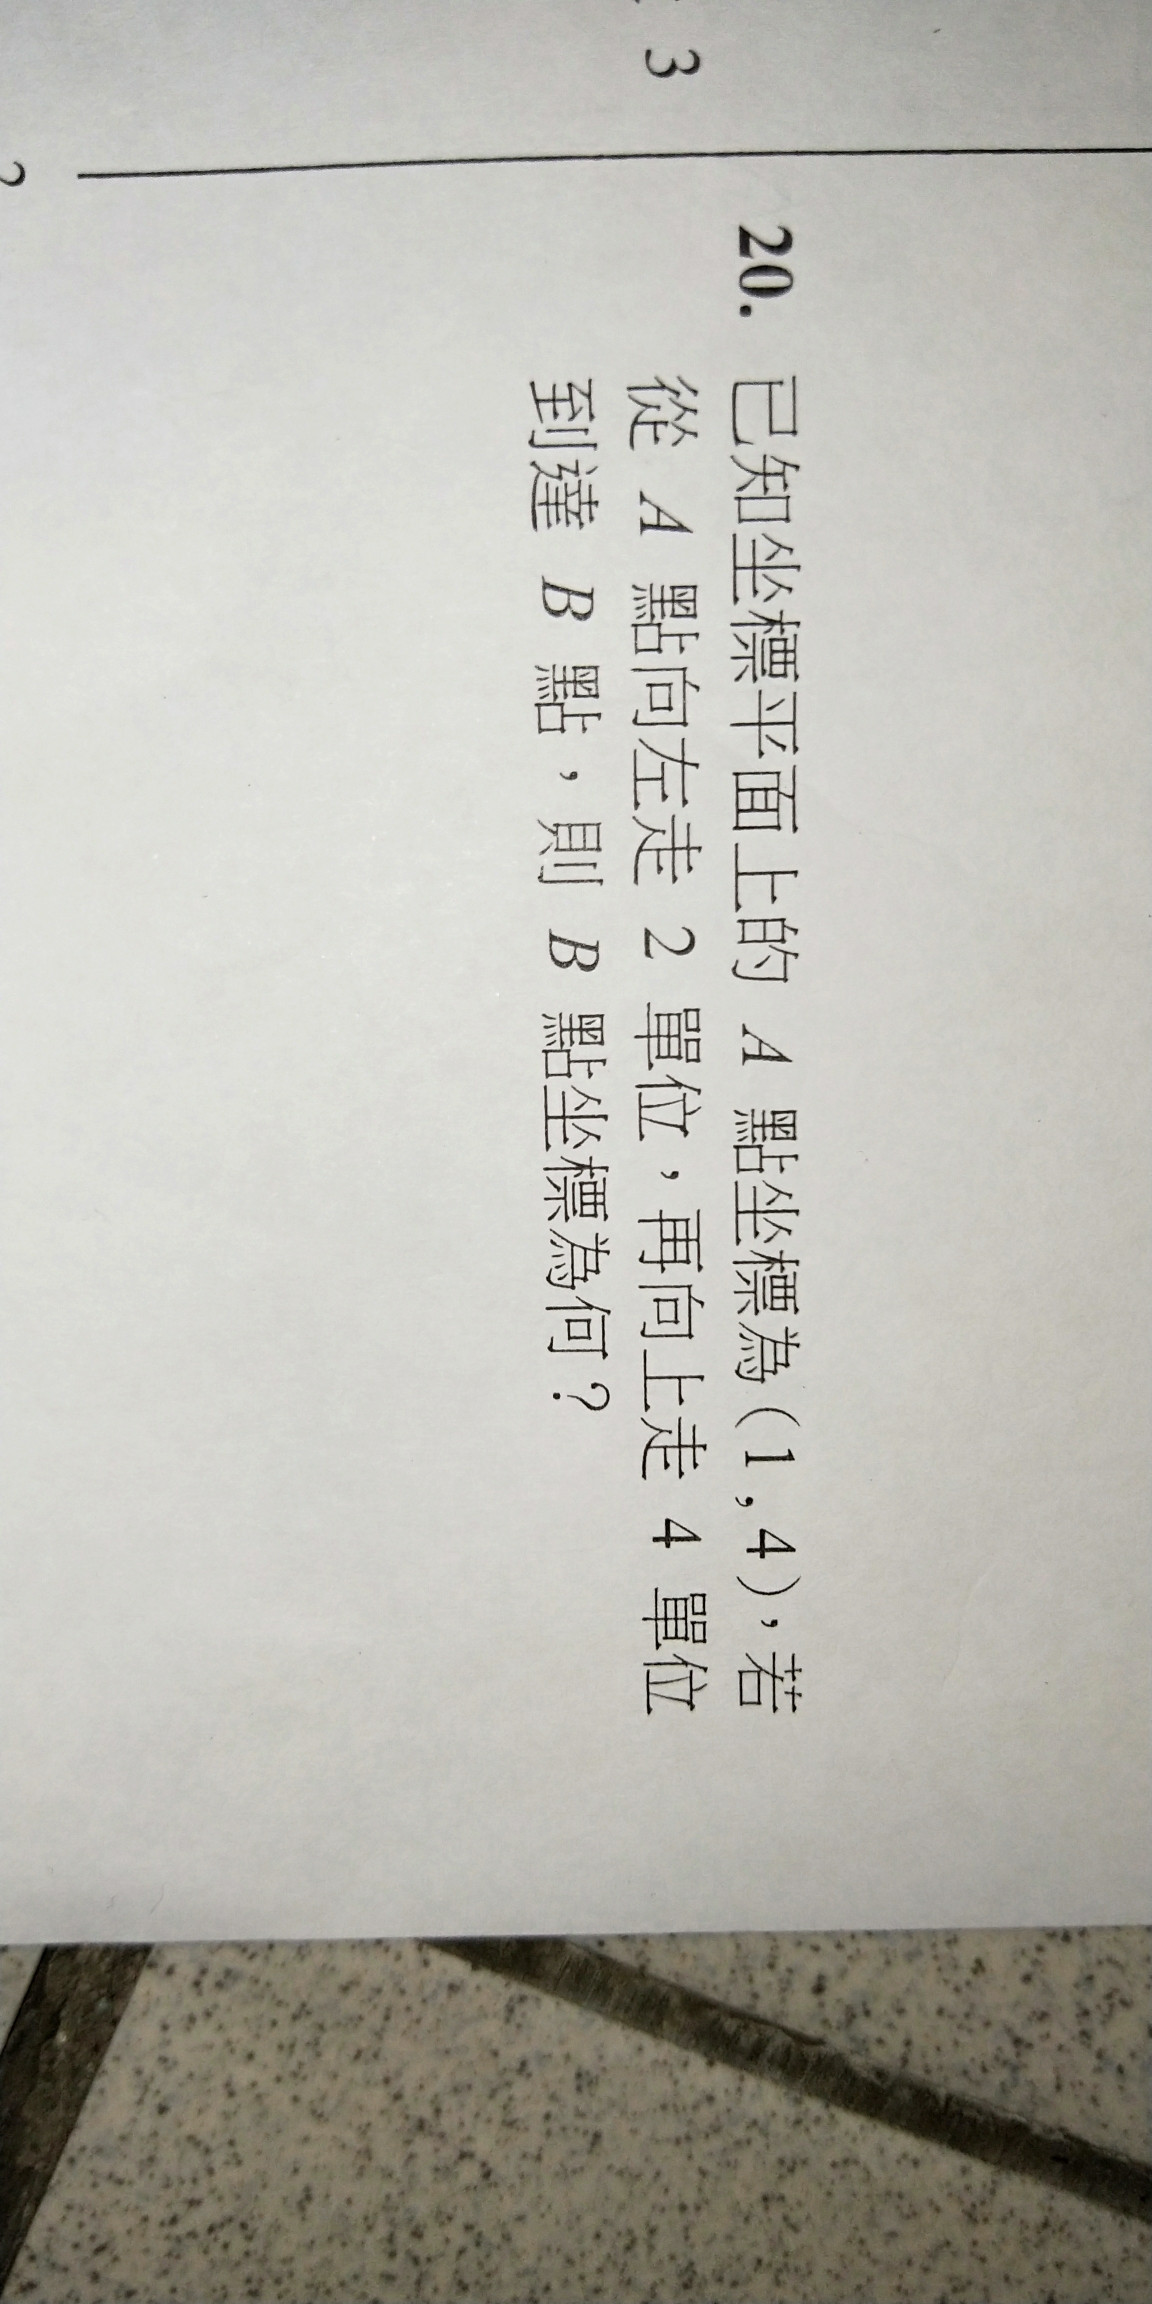 3
20. 已知坐標平面上的 A 點坐標為(1,4),若
從 A 點向左走 2 單位,再向上走 4 單位
到達 B 點,則 B 點坐標為何?